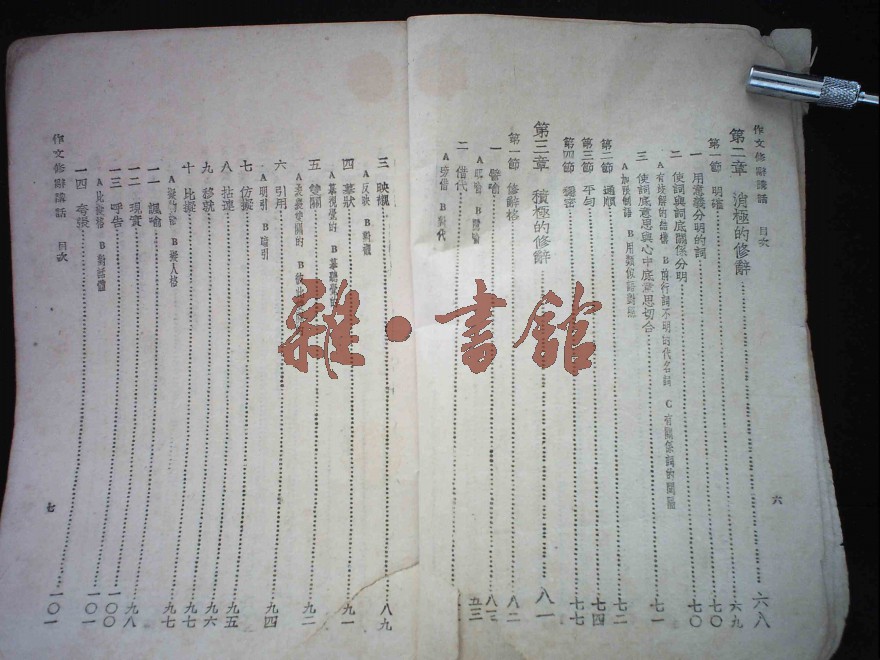 作文修辭講話 目次
第二章 消極的修辭 六八
第一節 明確 六九
一 用意義分明的詞 七〇
二 使詞與詞底關係分明 七〇
A 有歧解的結構 B 前行詞不明的代名詞 C 有關係詞的間隔
三 使詞底意思與心中底意思切合 七一
A 加限制語 B 用類似語對照
第二節 通順 七二
第三節 平勻 七四
第四節 穩密 七七
第三章 積極的修辭 八一
第一節 修辭格 八二
一 譬喻 八二
A 明喻 B 隱喻
二 借代
A 旁借 B 對代
六
作文修辭講話 目次
三 映襯 八九
A 反映 B 對襯
四 摹狀 九一
A 摹視覺的 B 摹聽覺的
五 雙關 九二
六 引用 九四
A 明引 B 暗引
七 仿擬 九五
八 拈連 九五
九 移就 九六
十 比擬 九七
B 擬人格 九七
一一 諷喻
一二 現實 九八
一三 呼告 一〇〇
一四 夸張 一〇一
七
雜·書館